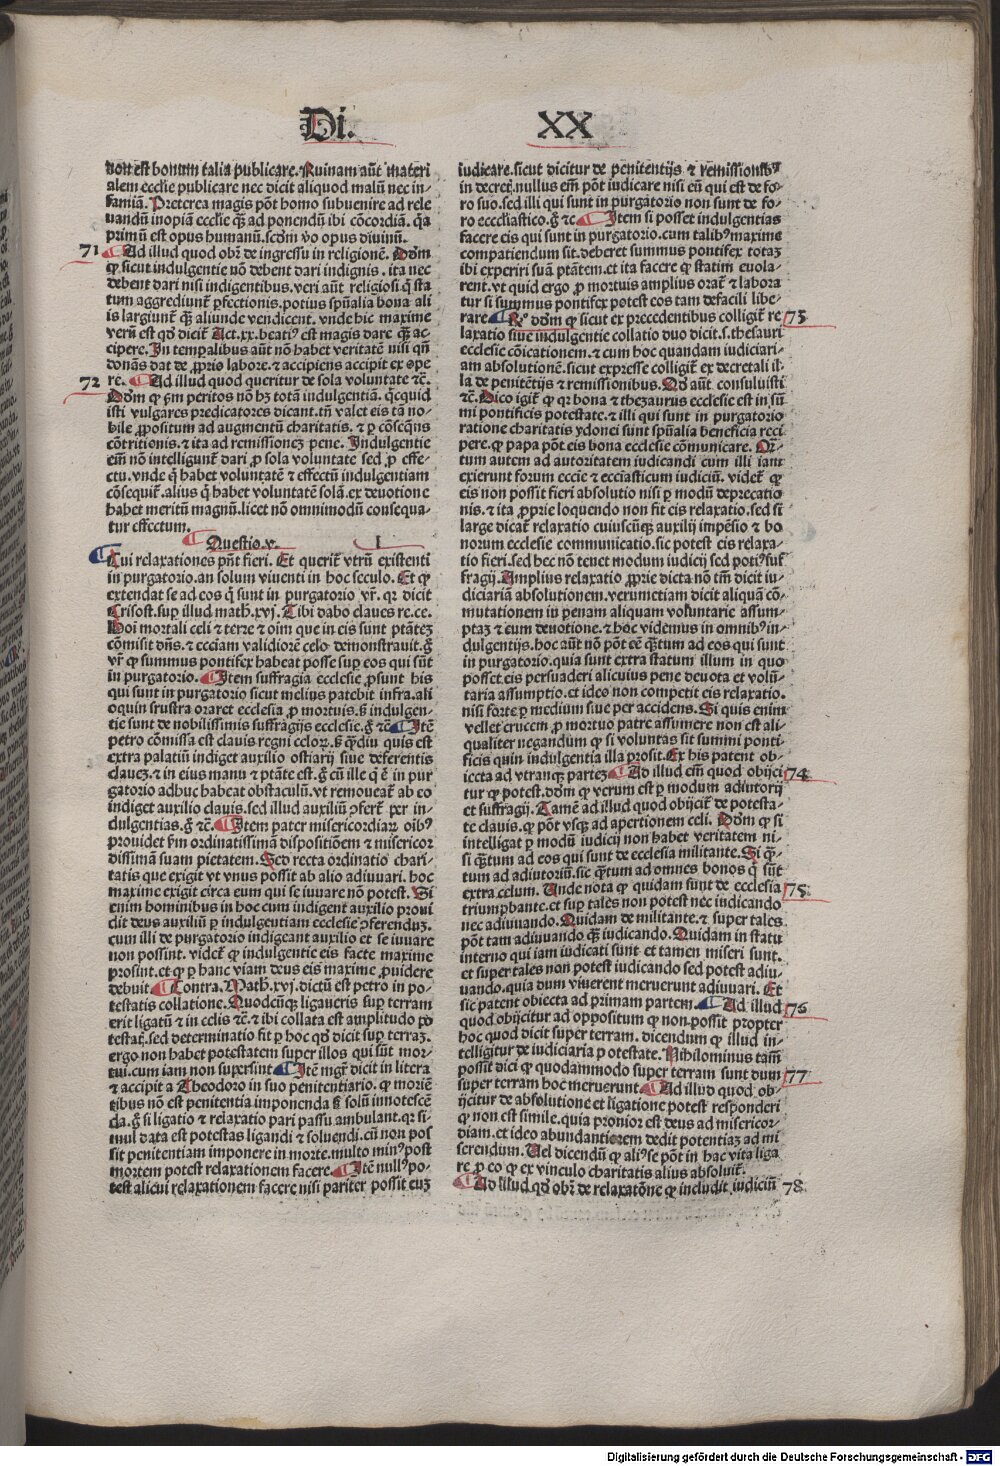 Di. XX
non est bonum talia publicare. Ruinam aūt materi
alem ecclie publicare nec dicit aliquod malū nec in-
famiā. Preterea magis pōt homo subuenire ad rele
uandū inopiā ecclie q̄ȝ ad ponendū ibi cōcordiā. q̄a
primū est opus humanū. scdm ꝟo opus diuinū.
71 Ad illud quod obȷ̄. de ingressu in religionē. Dōm
ꝙ sicut indulgentie nō debent dari indignis. ita nec
debent dari nisi indigentibus. veri aūt religiosi q̄ sta
tum aggrediunt̄ ꝑfectionis. potius spūalia bona ali
is largiunt̄ q̄ȝ aliunde vendicent. vnde hic maxime
verū est qđ dicit̄ Act. xx. beati⁹ est magis dare q̄ȝ ac-
cipere. In tempalibus aūt nō habet veritatē nisi qn̄
donās dat de ꝓprio labore. ⁊ accipiens accipit ex ope
72 re. Ad illud quod queritur de sola voluntate ⁊c̄.
Dōm ꝙ ẜm peritos nō hȝ totā indulgentiā. q̄cquid
isti vulgares predicatores dicant. tn̄ valet eis tā no-
bile ꝓpositum ad augmentū charitatis. ⁊ ꝑ cōseq̄ns
cōtritionis. ⁊ ita ad remissioneȝ pene. Indulgentie
em̄ nō intelligunt̄ dari ꝓ sola voluntate sed ꝓ effe-
ctu. vnde q̄ habet voluntatē ⁊ effectū indulgentiam
cōsequit̄. alius q̄ habet voluntatē solā. ex deuotione
habet meritū magnū. licet nō omnimodū consequa-
tur effectum.
Questio. v. I
Cui relaxationes pn̄t fieri. Et querit̄ vtrū existenti
in purgatorio. an solum viuenti in hoc seculo. Et ꝙ
extendat se ad eos q̄ sunt in purgatorio vr̄. qꝛ dicit
Crisost. suꝑ illud math. xvj. Tibi dabo claues re. ce.
Hoi mortali celi ⁊ terre ⁊ oim que in eis sunt ptāteȝ
cōmisit dn̄s. ⁊ eccl̄iam validiorē celo demonstrauit. ḡ
vr̄ ꝙ summus pontifex habeat posse suꝑ eos qui sūt
in purgatorio. Item suffragia ecclesie ꝓsunt his
qui sunt in purgatorio sicut melius patebit infra. ali
oquin frustra oraret ecclesia ꝓ mortuis. ẜ indulgen-
tie sunt de nobilissimis suffragijs ecclesie. ḡ ⁊c̄. Itē
petro cōmissa est clauis regni celoꝝ. ẜ q̄diu quis est
extra palatiū indiget auxilio ostiarij siue deferentis
claueȝ. ⁊ in eius manu ⁊ ptāte est. ḡ cū ille q̄ ē in pur
gatorio adhuc habeat obstaculū. vt remoueat̄ ab eo
indiget auxilio clauis. sed illud auxiliū ↄfert̄ per in-
dulgentias. ḡ ⁊c̄. Item pater misericordiaꝝ oib⁹
prouidet ẜm ordinatissimā dispositiōem ⁊ misericor
dissimā suam pietatem. Sed recta ordinatio chari-
tatis que exigit vt vnus possit ab alio adiuuari. hoc
maxime exigit circa eum qui se iuuare nō potest. Si
enim hominibus in hoc cum indigent auxilio proui
dit deus auxiliū ꝑ indulgentiam ecclesie ↄferenduȝ.
cum illi de purgatorio indigeant auxilio et se iuuare
non possint. videt̄ ꝙ indulgentie eis facte maxime
prosint. et ꝙ ꝑ hanc viam deus eis maxime ꝓuidere
debuit. Contra. Math. xvj. dictū est petro in po-
testatis collatione. Quodcūqȝ ligaueris suꝑ terram
erit ligatū ⁊ in celis ⁊c̄. ⁊ ibi collata est amplitudo po
testatꝭ. sed determinatio fit ꝑ hoc qđ dicit̄ suꝑ terraȝ.
ergo non habet potestatem super illos qui sūt mor-
tui. cum iam non supersint. Itē mgr̄ dicit in litera
⁊ accipit a Theodoro in suo penitentiario. ꝙ moriē
tibus nō est penitentia imponenda ẜ solū innotescē
da. ḡ si ligatio ⁊ relaxatio pari passu ambulant. qꝛ si-
mul data est potestas ligandi ⁊ soluendi. cū non pos
sit penitentiam imponere in morte. multo min⁹ post
mortem potest relaxationem facere. Itē null⁹ po-
test alicui relaxationem facere nisi pariter possit euȝ
iudicare. sicut dicitur de penitentijs ⁊ remissionib⁹
in decreꝭ. nullus em̄ pōt iudicare nisi eū qui est de fo-
ro suo. sed illi qui sunt in purgatorio non sunt de fo-
ro ecclesiastico. ḡ ⁊c̄. Item si posset indulgentias
facere eis qui sunt in purgatorio. cum talib⁹ maxime
compatiendum sit. deberet summus pontifex totaȝ
ibi experiri suā ptātem. et ita facere ꝙ statim euola-
rent. vt quid ergo ꝓ mortuis amplius orat̄ ⁊ labora
tur si summus pontifex potest eos tam defacili libe-
rare. Rº dōm ꝙ sicut ex precedentibus colligit̄ re 73
laxatio siue indulgentie collatio duo dicit. s. thesauri
ecclesie cōicationem. ⁊ cum hoc quandam iudiciari-
am absolutionē. sicut expresse colligit̄ ex decretali il-
la de penitētijs ⁊ remissionibus. Qđ aūt consuluisti
⁊c̄. Dico igit̄ ꝙ qꝛ bona ⁊ thezaurus ecclesie est in sū
mi pontificis potestate. ⁊ illi qui sunt in purgatorio
ratione charitatis ydonei sunt spūalia beneficia reci
pere. ꝙ papa pōt eis bona ecclesie cōmunicare. Qn̄-
tum autem ad autoritatem iudicandi cum illi iam
exierunt forum eccl̄ie ⁊ eccl̄iasticum iudiciū. videt̄ ꝙ
eis non possit fieri absolutio nisi ꝑ modū deprecatio
nis. ⁊ ita ꝓprie loquendo non fit eis relaxatio. sed si
large dicat̄ relaxatio cuiuscūqȝ auxilij impēsio ⁊ bo
norum ecclesie communicatio. sic potest eis relaxa-
tio fieri. sed hec nō tenet modum iudicij sed poti⁹ suf
fragij. Amplius relaxatio ꝓprie dicta nō tm̄ dicit iu-
diciariā absolutionem. verumetiam dicit aliquā cō-
mutationem in penam aliquam voluntarie assum-
ptaȝ ⁊ cum deuotione. ⁊ hoc videmus in omnib⁹ in-
dulgentijs. hoc aūt nō pōt eē q̄ȝtum ad eos qui sunt
in purgatorio. quia sunt extra statum illum in quo
posset eis persuaderi alicuius pene deuota et volū-
taria assumptio. et ideo non competit eis relaxatio.
nisi forte ꝑ medium siue per accidens. Si quis enim
vellet crucem ꝓ mortuo patre assumere non est ali-
qualiter negandum ꝙ si voluntas sit summi ponti-
ficis quin indulgentia illa prosit. Ex his patent ob-
iecta ad vtranqȝ parteȝ. Ad illud em̄ quod obijci 74
tur ꝙ potest. dōm ꝙ verum est ꝑ modum adiutorij
et suffragij. Tamē ad illud quod obijcit̄ de potesta-
te clauis. ꝙ pōt vsqȝ ad apertionem celi. Dōm ꝙ si
intelligat̄ ꝑ modū iudicij non habet veritatem ni-
si q̄ȝtum ad eos qui sunt de ecclesia militante. Si q̄ȝ-
tum ad adiutoriū. sic q̄ȝtum ad omnes bonos q̄ sūt
extra celum. Unde nota ꝙ quidam sunt de ecclesia 75
triumphante. et suꝑ tales non potest nec iudicando
nec adiuuando. Quidam de militante. ⁊ super tales
pōt tam adiuuando q̄ȝ iudicando. Quidam in statu
inferno qui iam iudicati sunt et tamen miseri sunt.
et super tales non potest iudicando sed potest adiu-
uando. quia dum viuerent meruerunt adiuuari. Et
sic patent obiecta ad primam partem. Ad illud 76
quod obijcitur ad oppositum ꝙ non possit propter
hoc quod dicit super terram. dicendum ꝙ illud in-
telligitur de iudiciaria potestate. Nihilominus tam̄
possit dici ꝙ quodammodo super terram sunt dum 77
super terram hoc meruerunt. Ad illud quod ob-
ijcitur de absolutione et ligatione potest responderi
ꝙ non est simile. quia pronior est deus ad misericor-
diam. et ideo abundantiorem dedit potentiaȝ ad mi
serendum. Uel dicendū ꝙ ali⁹ se pōt in hac vita liga
re ꝓ eo ꝙ ex vinculo charitatis alius absoluit̄.
Ad illud qđ obȷ̄. de relaxatōne ꝙ includit iudiciū 78
Digitalisierung gefördert durch die Deutsche Forschungsgemeinschaft - DFG